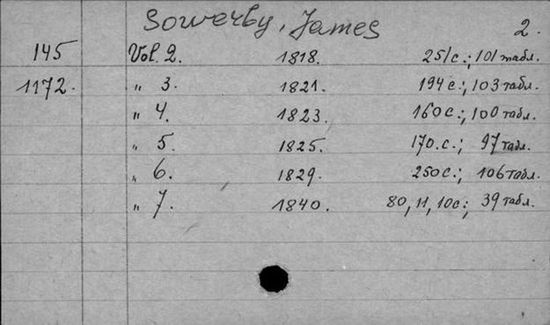 Sowerby, James
2.
145 Vol. 2. 1818. 251с.; 101 табл.
1172. " 3. 1821. 194с.; 103 табл.
" 4. 1823. 160с.; 100 табл.
" 5. 1825. 170.с.; 97 табл.
" 6. 1829. 250с.; 106 табл.
" 7. 1840. 80, 11, 10с.; 39 табл.